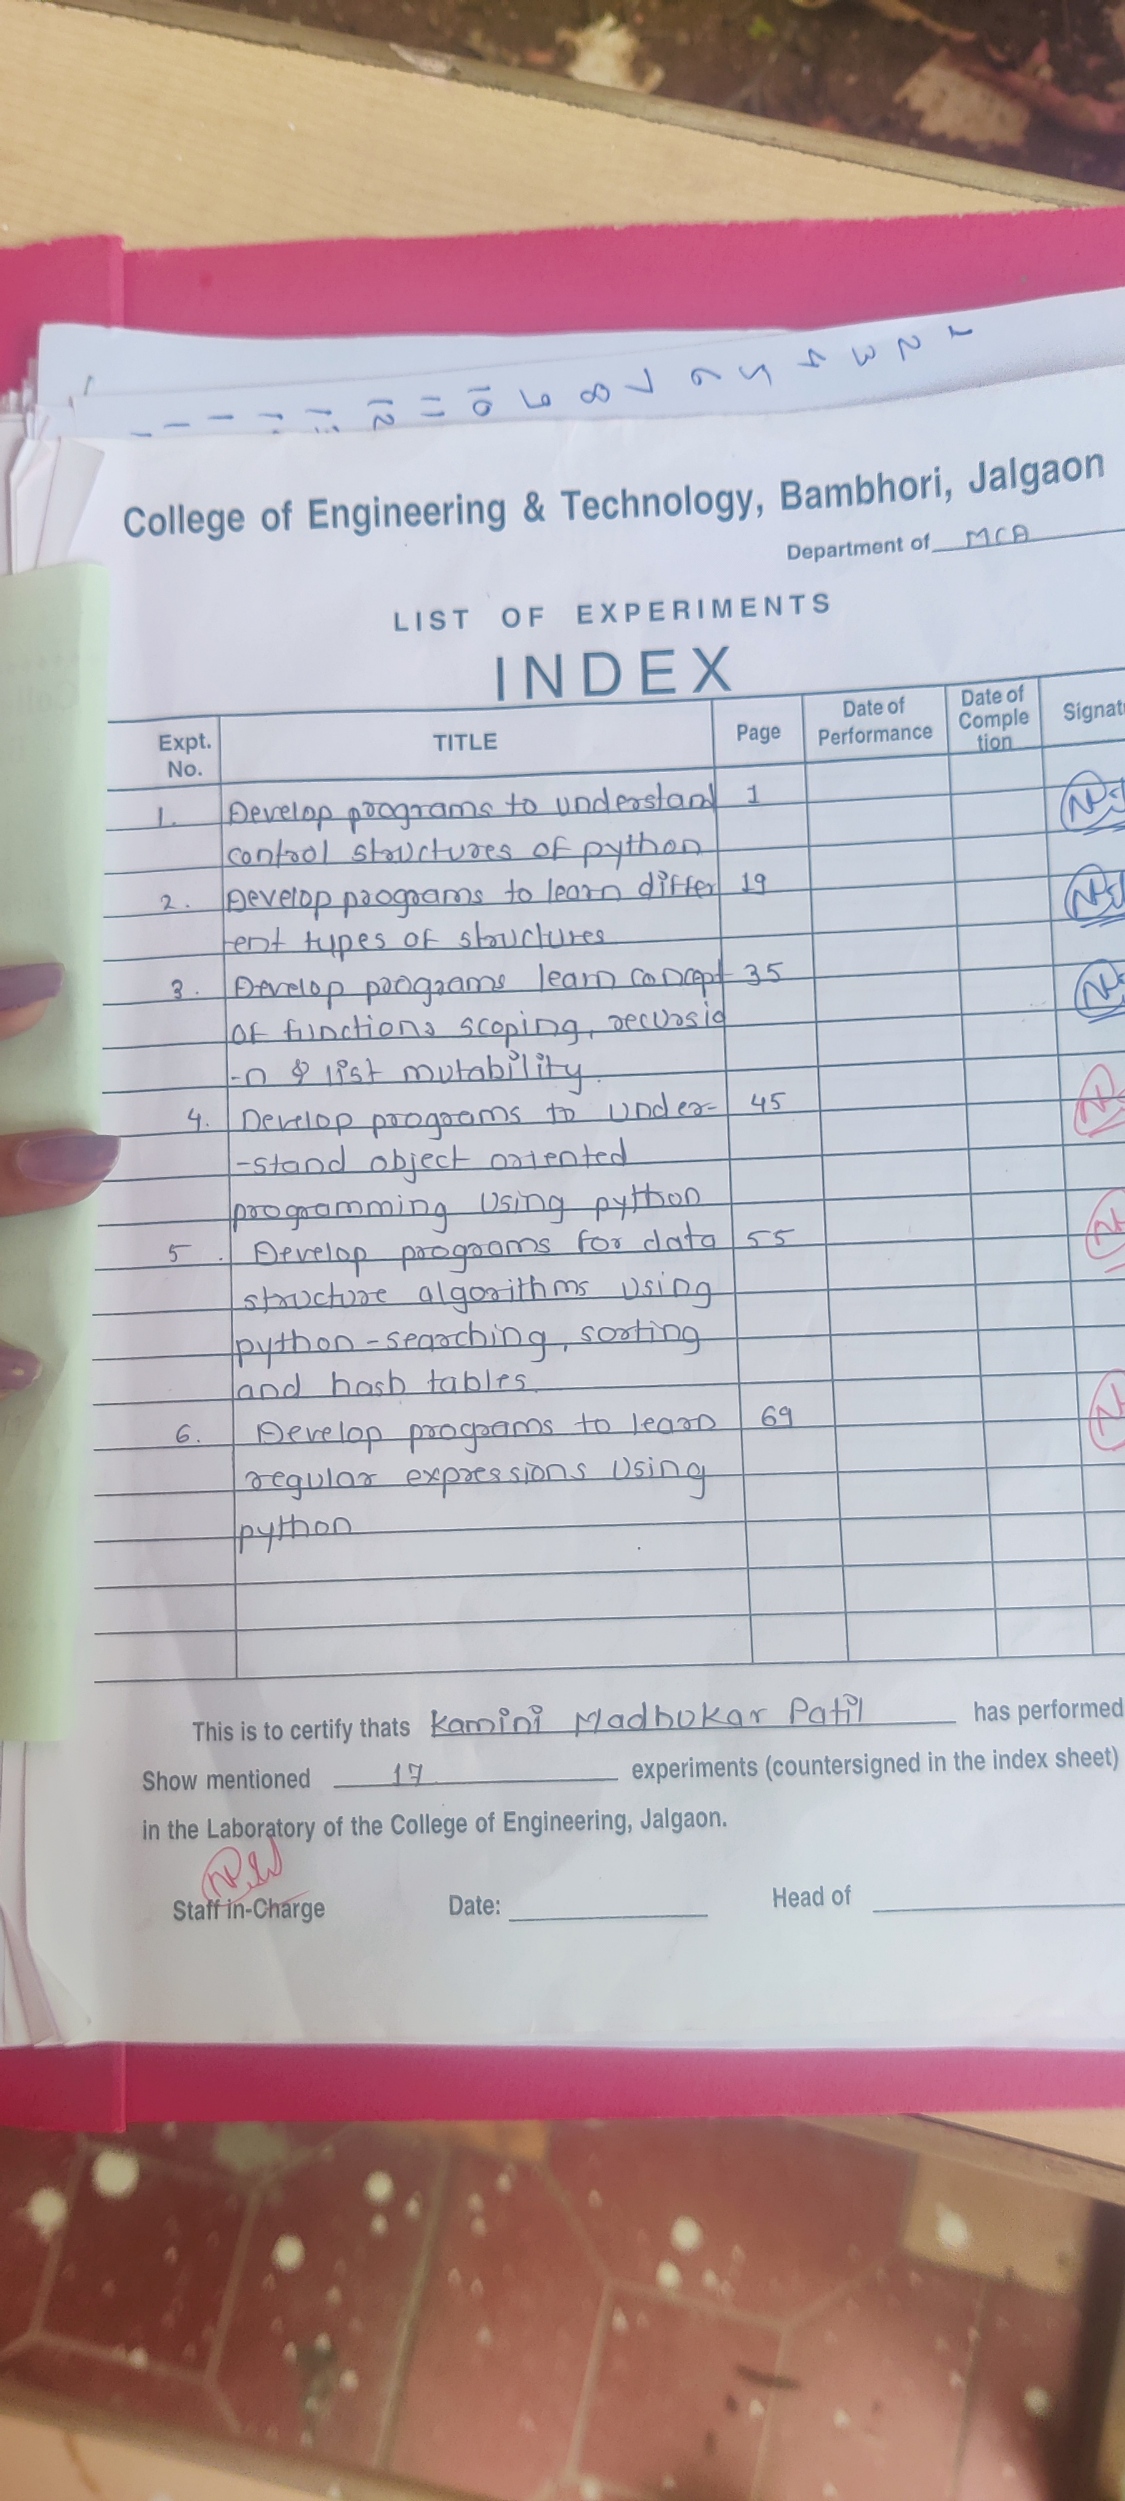 1 2 3 4 5 6 7 8 9 10 11 12
College of Engineering & Technology, Bambhori, Jalgaon
Department of MCA
LIST OF EXPERIMENTS
INDEX
Expt. No. TITLE Page Date of Performance Date of Comple tion Signat
1. Develop programs to understand 1
control structures of python
2. Develop programs to learn differ 19
rent types of structures
3. Develop programs learn concept 35
of functions scoping, recursio
-n & list mutability.
4. Develop programs to under- 45
-stand object oriented
programming using python
5. Develop programs for data 55
structure algorithms using
python-searching, sorting
and hash tables.
6. Develop programs to learn 69
regular expressions using
python
This is to certify thats Kamini Madhukar Patil has performed
Show mentioned 17 experiments (countersigned in the index sheet)
in the Laboratory of the College of Engineering, Jalgaon.
Staff in-Charge Date: Head of